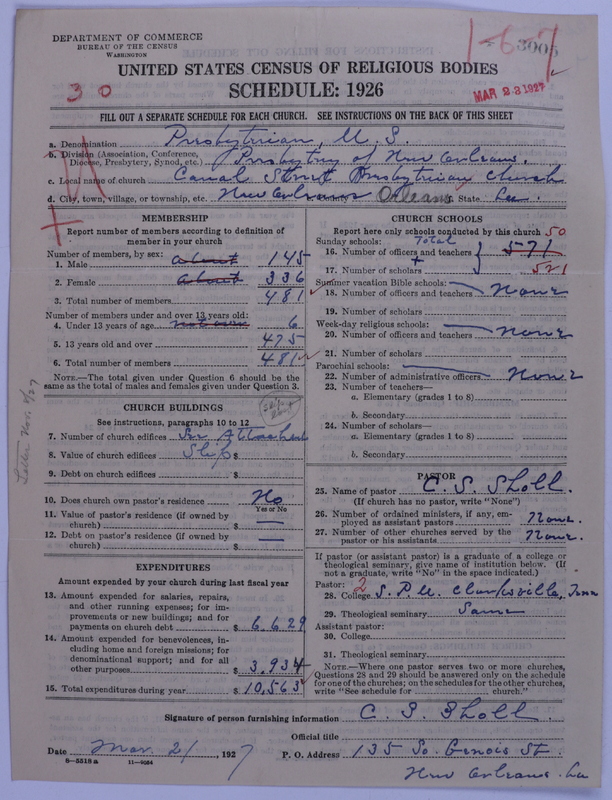 DEPARTMENT OF COMMERCE
BUREAU OF THE CENSUS
WASHINGTON
1-67
3005
UNITED STATES CENSUS OF RELIGIOUS BODIES
SCHEDULE: 1926
30
MAR 23 1927
FILL OUT A SEPARATE SCHEDULE FOR EACH CHURCH. SEE INSTRUCTIONS ON THE BACK OF THIS SHEET
a. Denomination Presbyterian, U. S.
b. Division (Association, Conference, Diocese, Presbytery, Synod, etc.) Presbytry of New Orleans.
c. Local name of church Canal Street Presbyterian Church
d. City, town, village, or township, etc. New Orleans Orleans State La.
MEMBERSHIP
Report number of members according to definition of
member in your church
Number of members, by sex:
1. Male about 145
2. Female about 336
3. Total number of members 481
Number of members under and over 13 years old:
4. Under 13 years of age not over 6
5. 13 years old and over 475
6. Total number of members 481
NOTE.—The total given under Question 6 should be the
same as the total of males and females given under Question 3.
CHURCH BUILDINGS
See instructions, paragraphs 10 to 12
7. Number of church edifices See Attached
8. Value of church edifices Slip $
9. Debt on church edifices $
10. Does church own pastor's residence No
Yes or No
11. Value of pastor's residence (if owned by
church) $ —
12. Debt on pastor's residence (if owned by
church) $ —
Letter Nov. 8/27
EXPENDITURES
Amount expended by your church during last fiscal year
13. Amount expended for salaries, repairs,
and other running expenses; for im-
provements or new buildings; and for
payments on church debt $ 6,629
14. Amount expended for benevolences, in-
cluding home and foreign missions; for
denominational support; and for all
other purposes $ 3,934
15. Total expenditures during year $ 10,563
CHURCH SCHOOLS
Report here only schools conducted by this church 50
Sunday schools: Total
16. Number of officers and teachers 571
+
17. Number of scholars 521
Summer vacation Bible schools:
18. Number of officers and teachers None
19. Number of scholars
Week-day religious schools:
20. Number of officers and teachers None
21. Number of scholars
Parochial schools:
22. Number of administrative officers None
23. Number of teachers—
a. Elementary (grades 1 to 8)
b. Secondary
24. Number of scholars—
a. Elementary (grades 1 to 8)
b. Secondary
PASTOR
25. Name of pastor C. S. Sholl.
(If church has no pastor, write "None")
26. Number of ordained ministers, if any, em-
ployed as assistant pastors None.
27. Number of other churches served by the
pastor or his assistants None.
If pastor (or assistant pastor) is a graduate of a college or
theological seminary, give name of institution below. (If
not a graduate, write "No" in the space indicated.)
Pastor: 2
28. College S. P. U. Clarksville, Tenn
29. Theological seminary Same
Assistant pastor:
30. College
31. Theological seminary
NOTE.—Where one pastor serves two or more churches,
Questions 28 and 29 should be answered only on the schedule
for one of the churches; on the schedules for the other churches,
write "See schedule for church."
Signature of person furnishing information C. S. Sholl.
Official title
Date Mar. 21 1927
P. O. Address 135 So. Genois St.
8—5318 a 11—9054
New Orleans. La